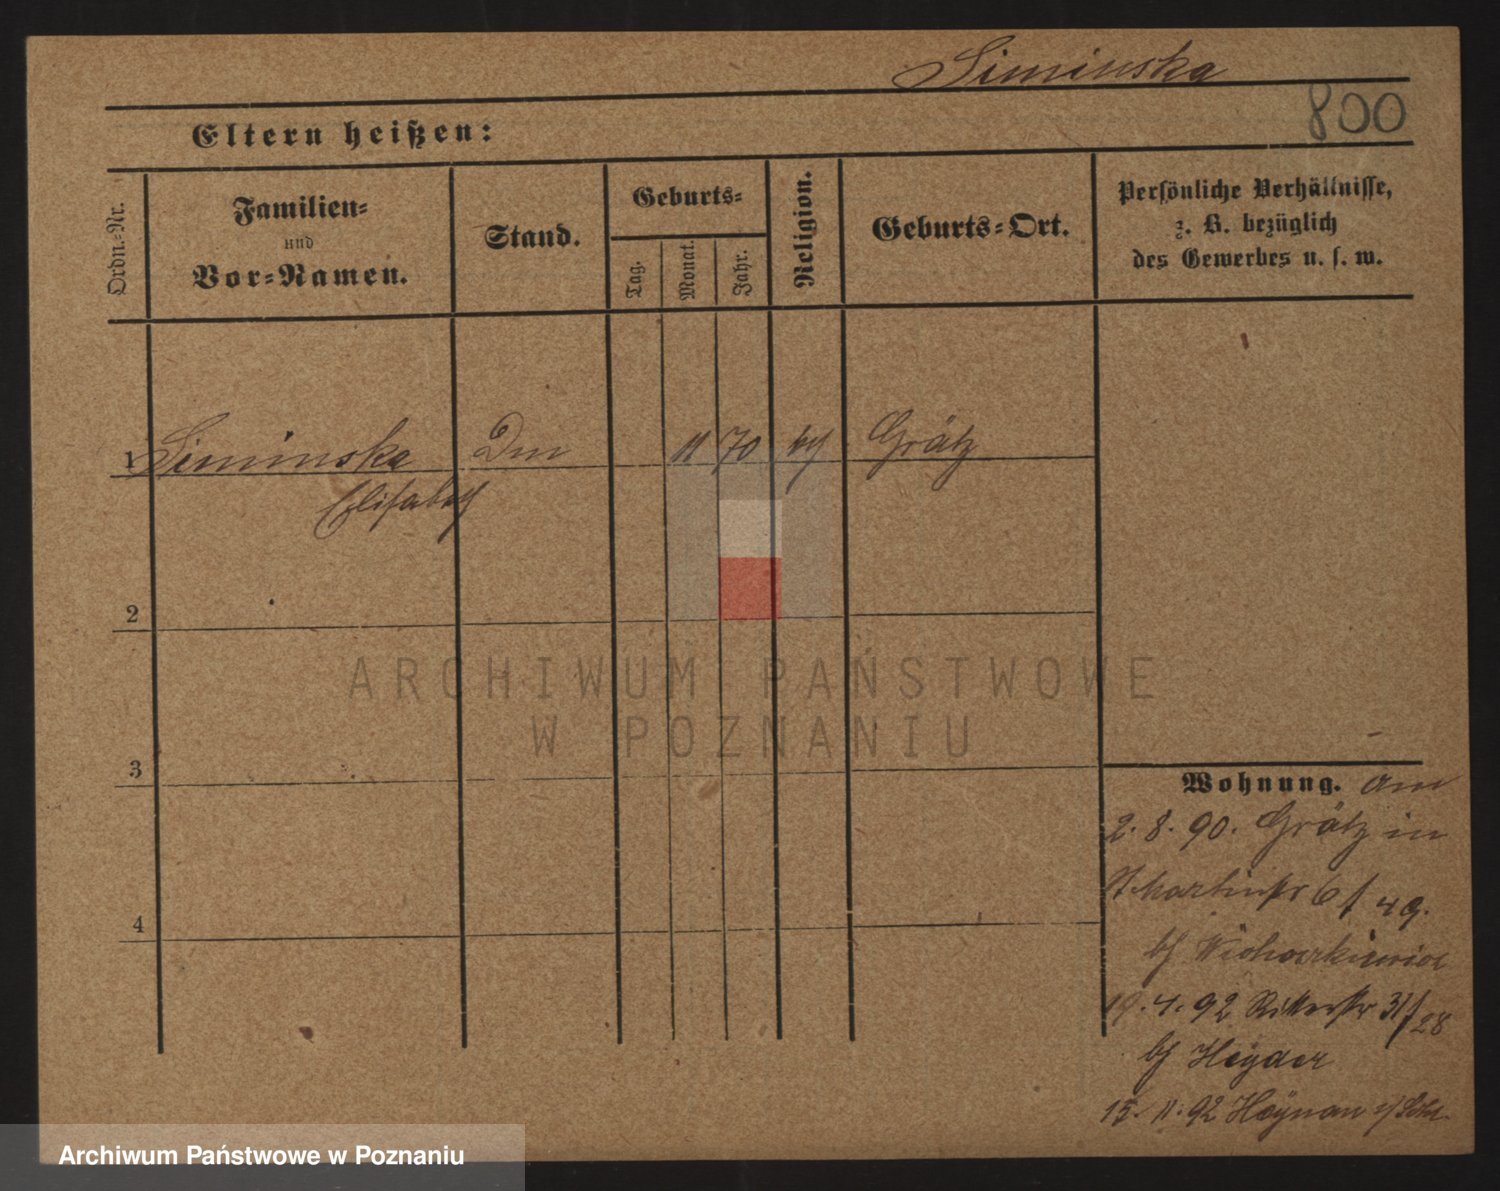 Siminska
800
Eltern heißen:
Ordn.-Nr.
Familien-
und
Vor-Namen.
Stand.
Geburts-
Tag.
Monat.
Jahr.
Religion.
Geburts-Ort.
Persönliche Verhältnisse,
z. B. bezüglich
des Gewerbes u. s. w.
1 Siminska 11 70 Grätz
Elisabeth
2
3
4
Wohnung. am
2. 8. 90. Grätz in
St Martinstr 6/ 4 9.
bei
19. 4. 92 Ritterstr 31/28
bei Heyder
15. 11. 92 Haynau
ARCHIWUM PAŃSTWOWE
W POZNANIU
Archiwum Państwowe w Poznaniu